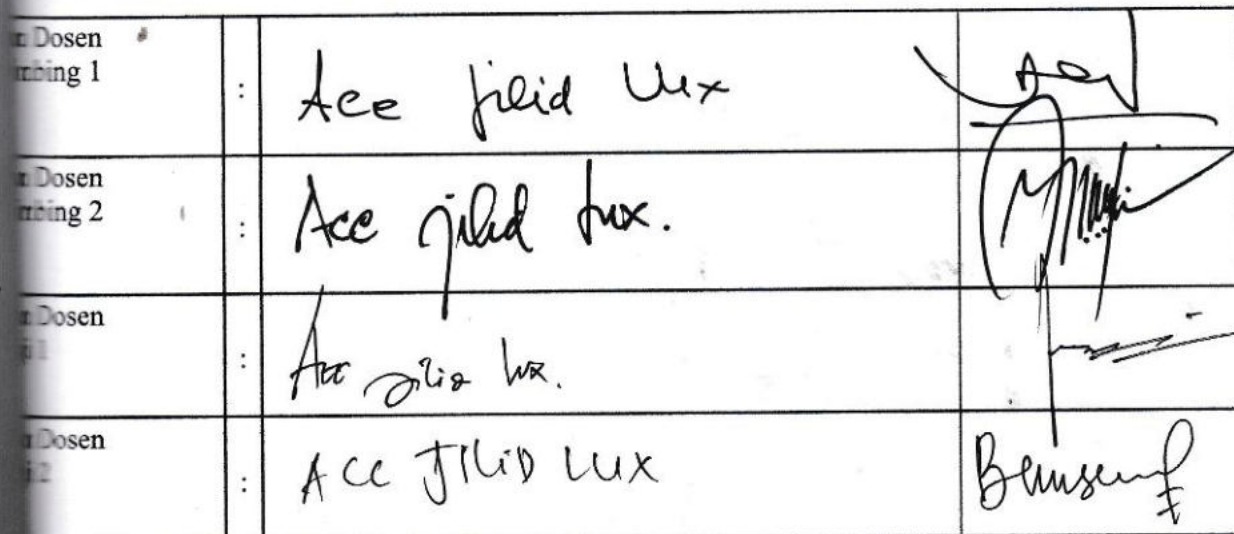 n Dosen
mbing 1
: Acc jilid lux
n Dosen
mbing 2
: Acc jilid lux.
n Dosen
ji 1
: Acc jilid lux.
n Dosen
ji 2
: ACC JILID LUX